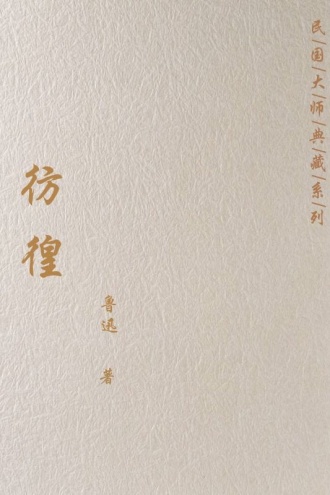 民国大师典藏系列
彷徨
鲁迅 著